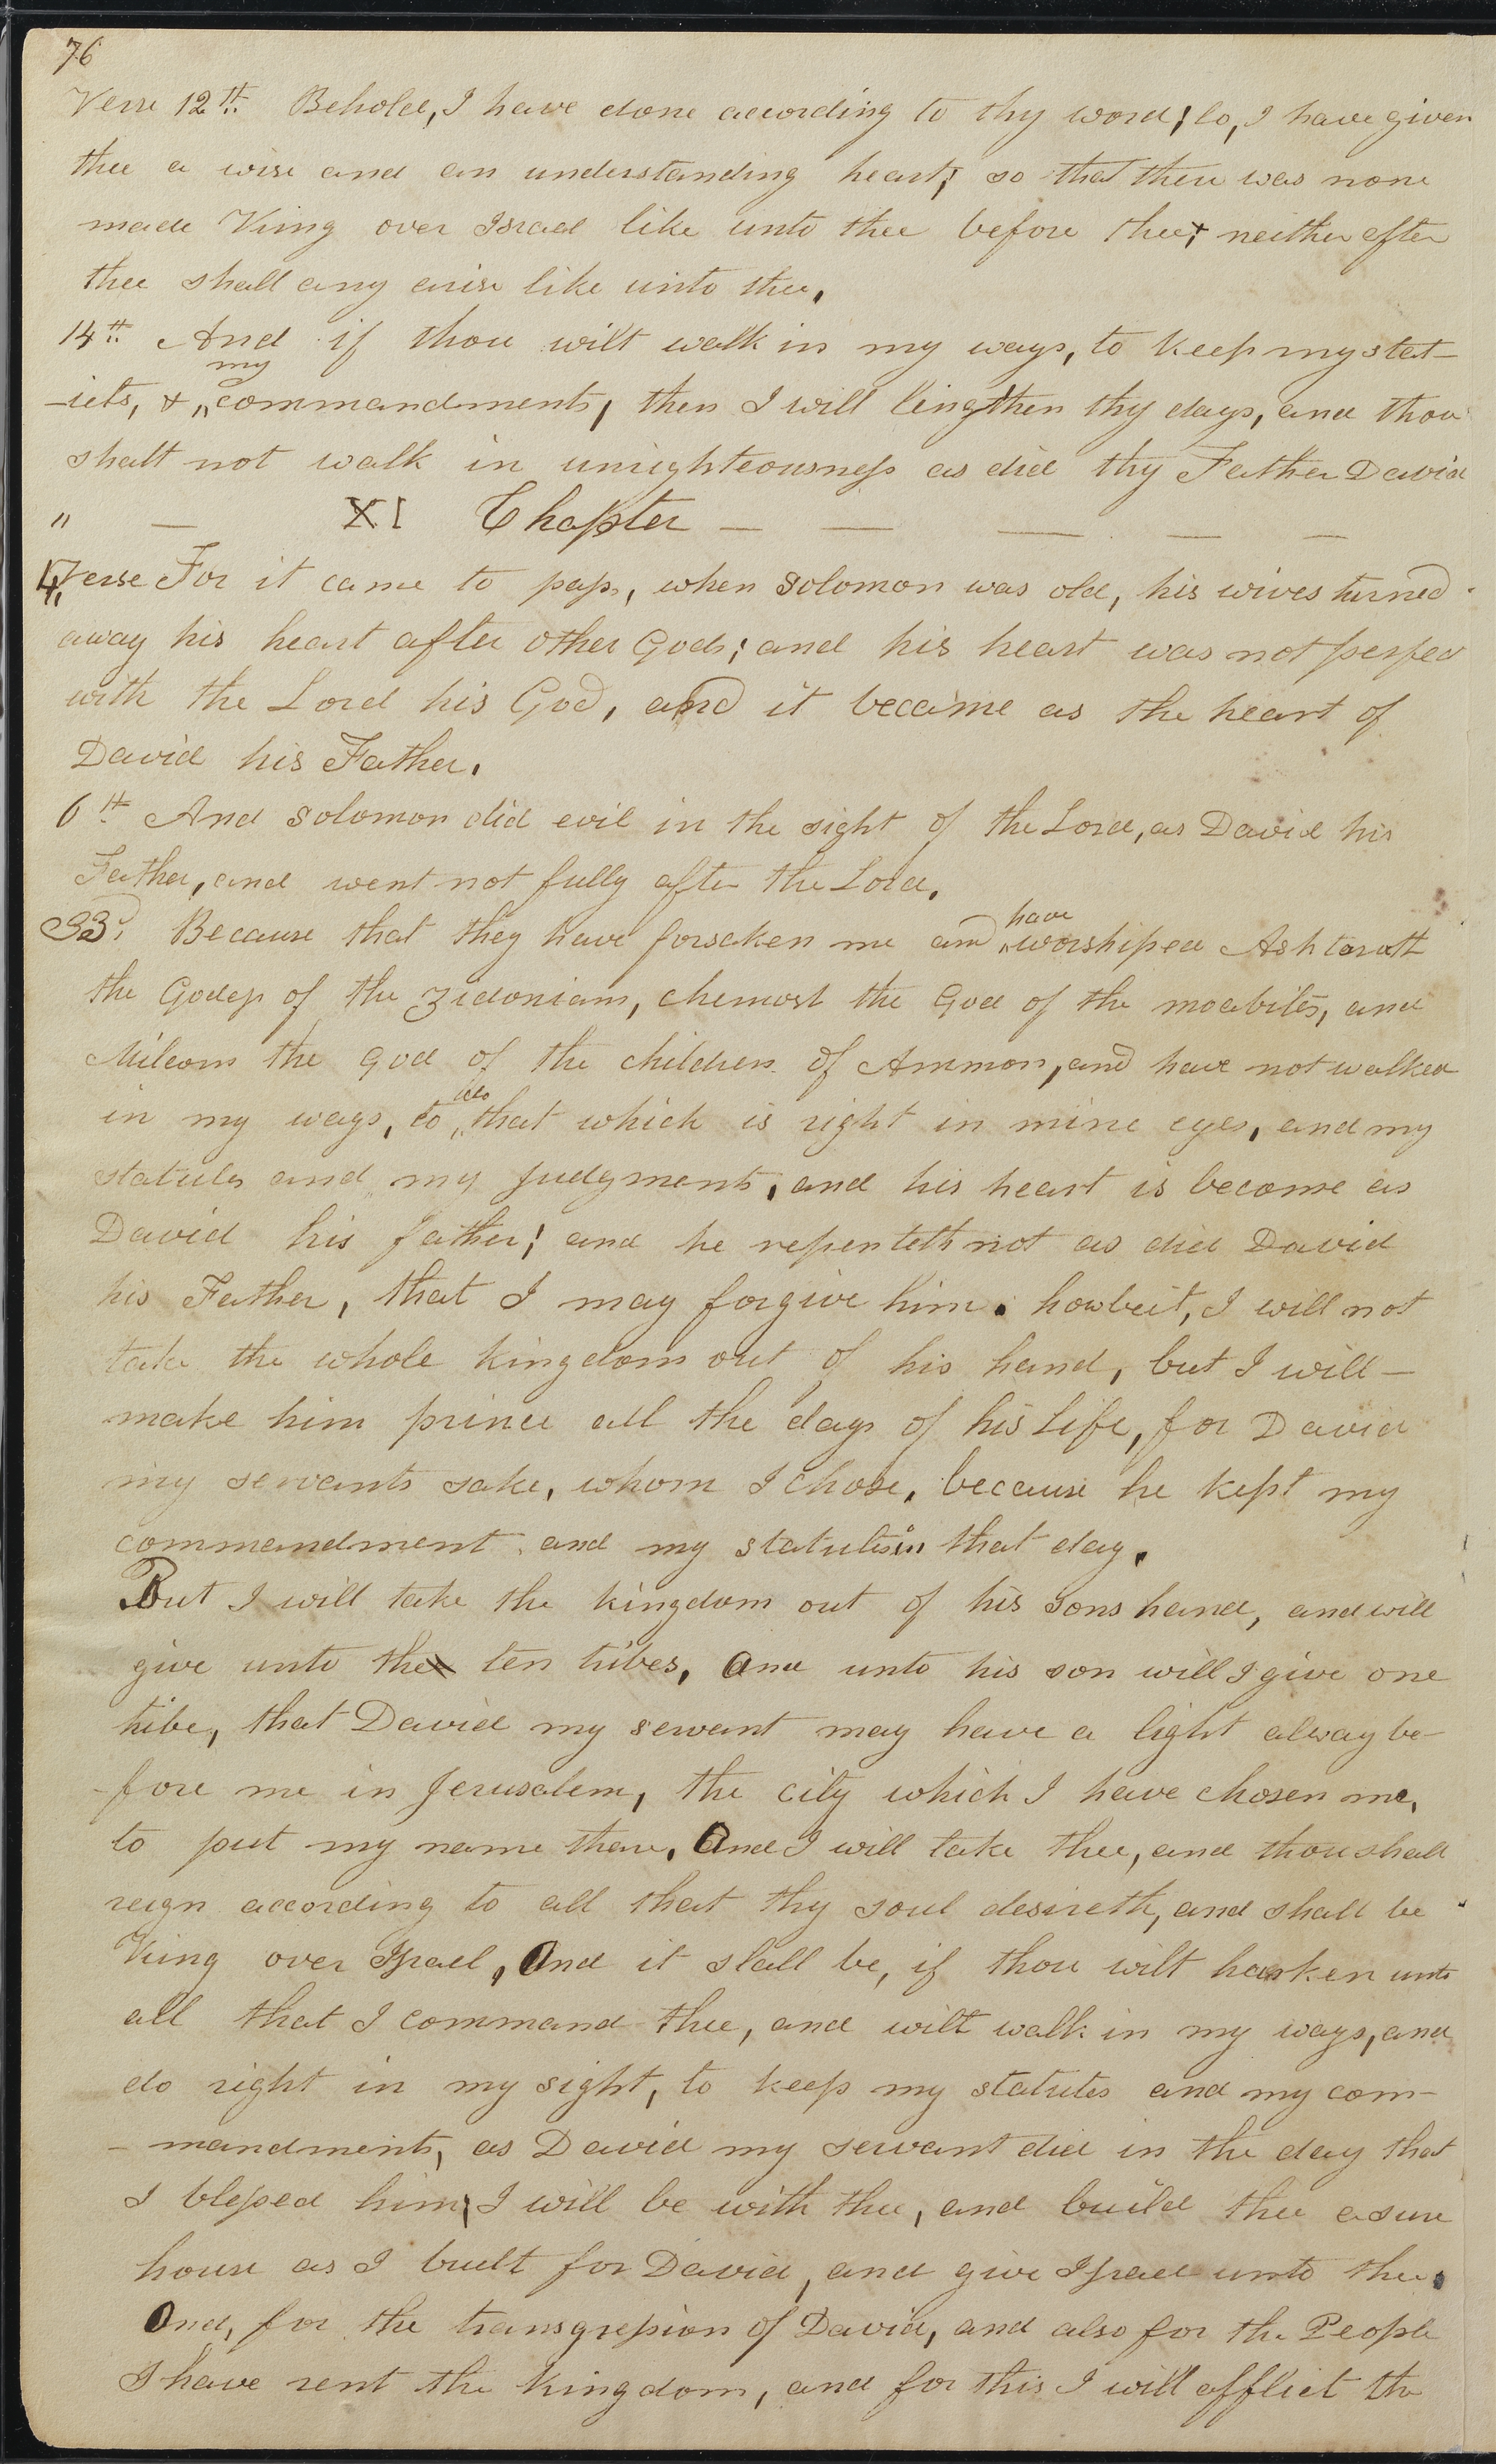 76
Verse 12th. Behold, I have done according to thy word; lo, I have given
thee a wise and an understanding heart; so that there was none
made King over Israel like unto thee before thee; neither after
thee shall any arise like unto thee.
14th. And if thou wilt walk in my ways, to keep my stat-
my
-uts, & commandments, then I will lingthen thy days, and thou
shalt not walk in unrighteousness as did thy Father David
" — XI Chapter — — — — —
4, Verse For it came to pass, when Solomon was old, his wives turned
away his heart after other Gods; and his heart was not perfect
with the Lord his God, and it became as the heart of
David his Father.
6th And Solomon did evil in the sight of the Lord, as David his
Father, and went not fully after the Lord.
33d. Because that they have forsaken me and worshiped Ashtaroth
have
the Godess of the Zidonians, chemosh the God of the moabites, and
Milcom the God of the children of Ammon, and have not walked
do
in my ways, to that which is right in mine eyes, and my
statutes and my judgments, and his heart is become as
David his father; and he repenteth not as did David
his Father, that I may forgive him. howbeit, I will not
take the whole kingdom out of his hand, but I will —
make him prince all the days of his Life, for David
my servants sake, whom I chose, because he kept my
commandment and my statutes in that day.
But I will take the kingdom out of his sons hand, and will
give unto the ten tribes, And unto his son will I give one
tribe, that David my servant may have a light alway be-
-fore me in Jerusalem, the city which I have chosen me,
to put my name there, And I will take thee, and thou shall
reign according to all that thy soul desireth, and shall be
King over Israel, And it shall be, if thou wilt harken unto
all that I command thee, and wilt walk in my ways, and
do right in my sight, to keep my statutes and my com-
- mandments, as David my servant did in the day that
I blessed him, I will be with thee, and build thee a sure
house as I built for David, and give Israel unto thee.
And, for the transgression of David, and also for the People
I have rent the kingdom, and for this I will afflict the